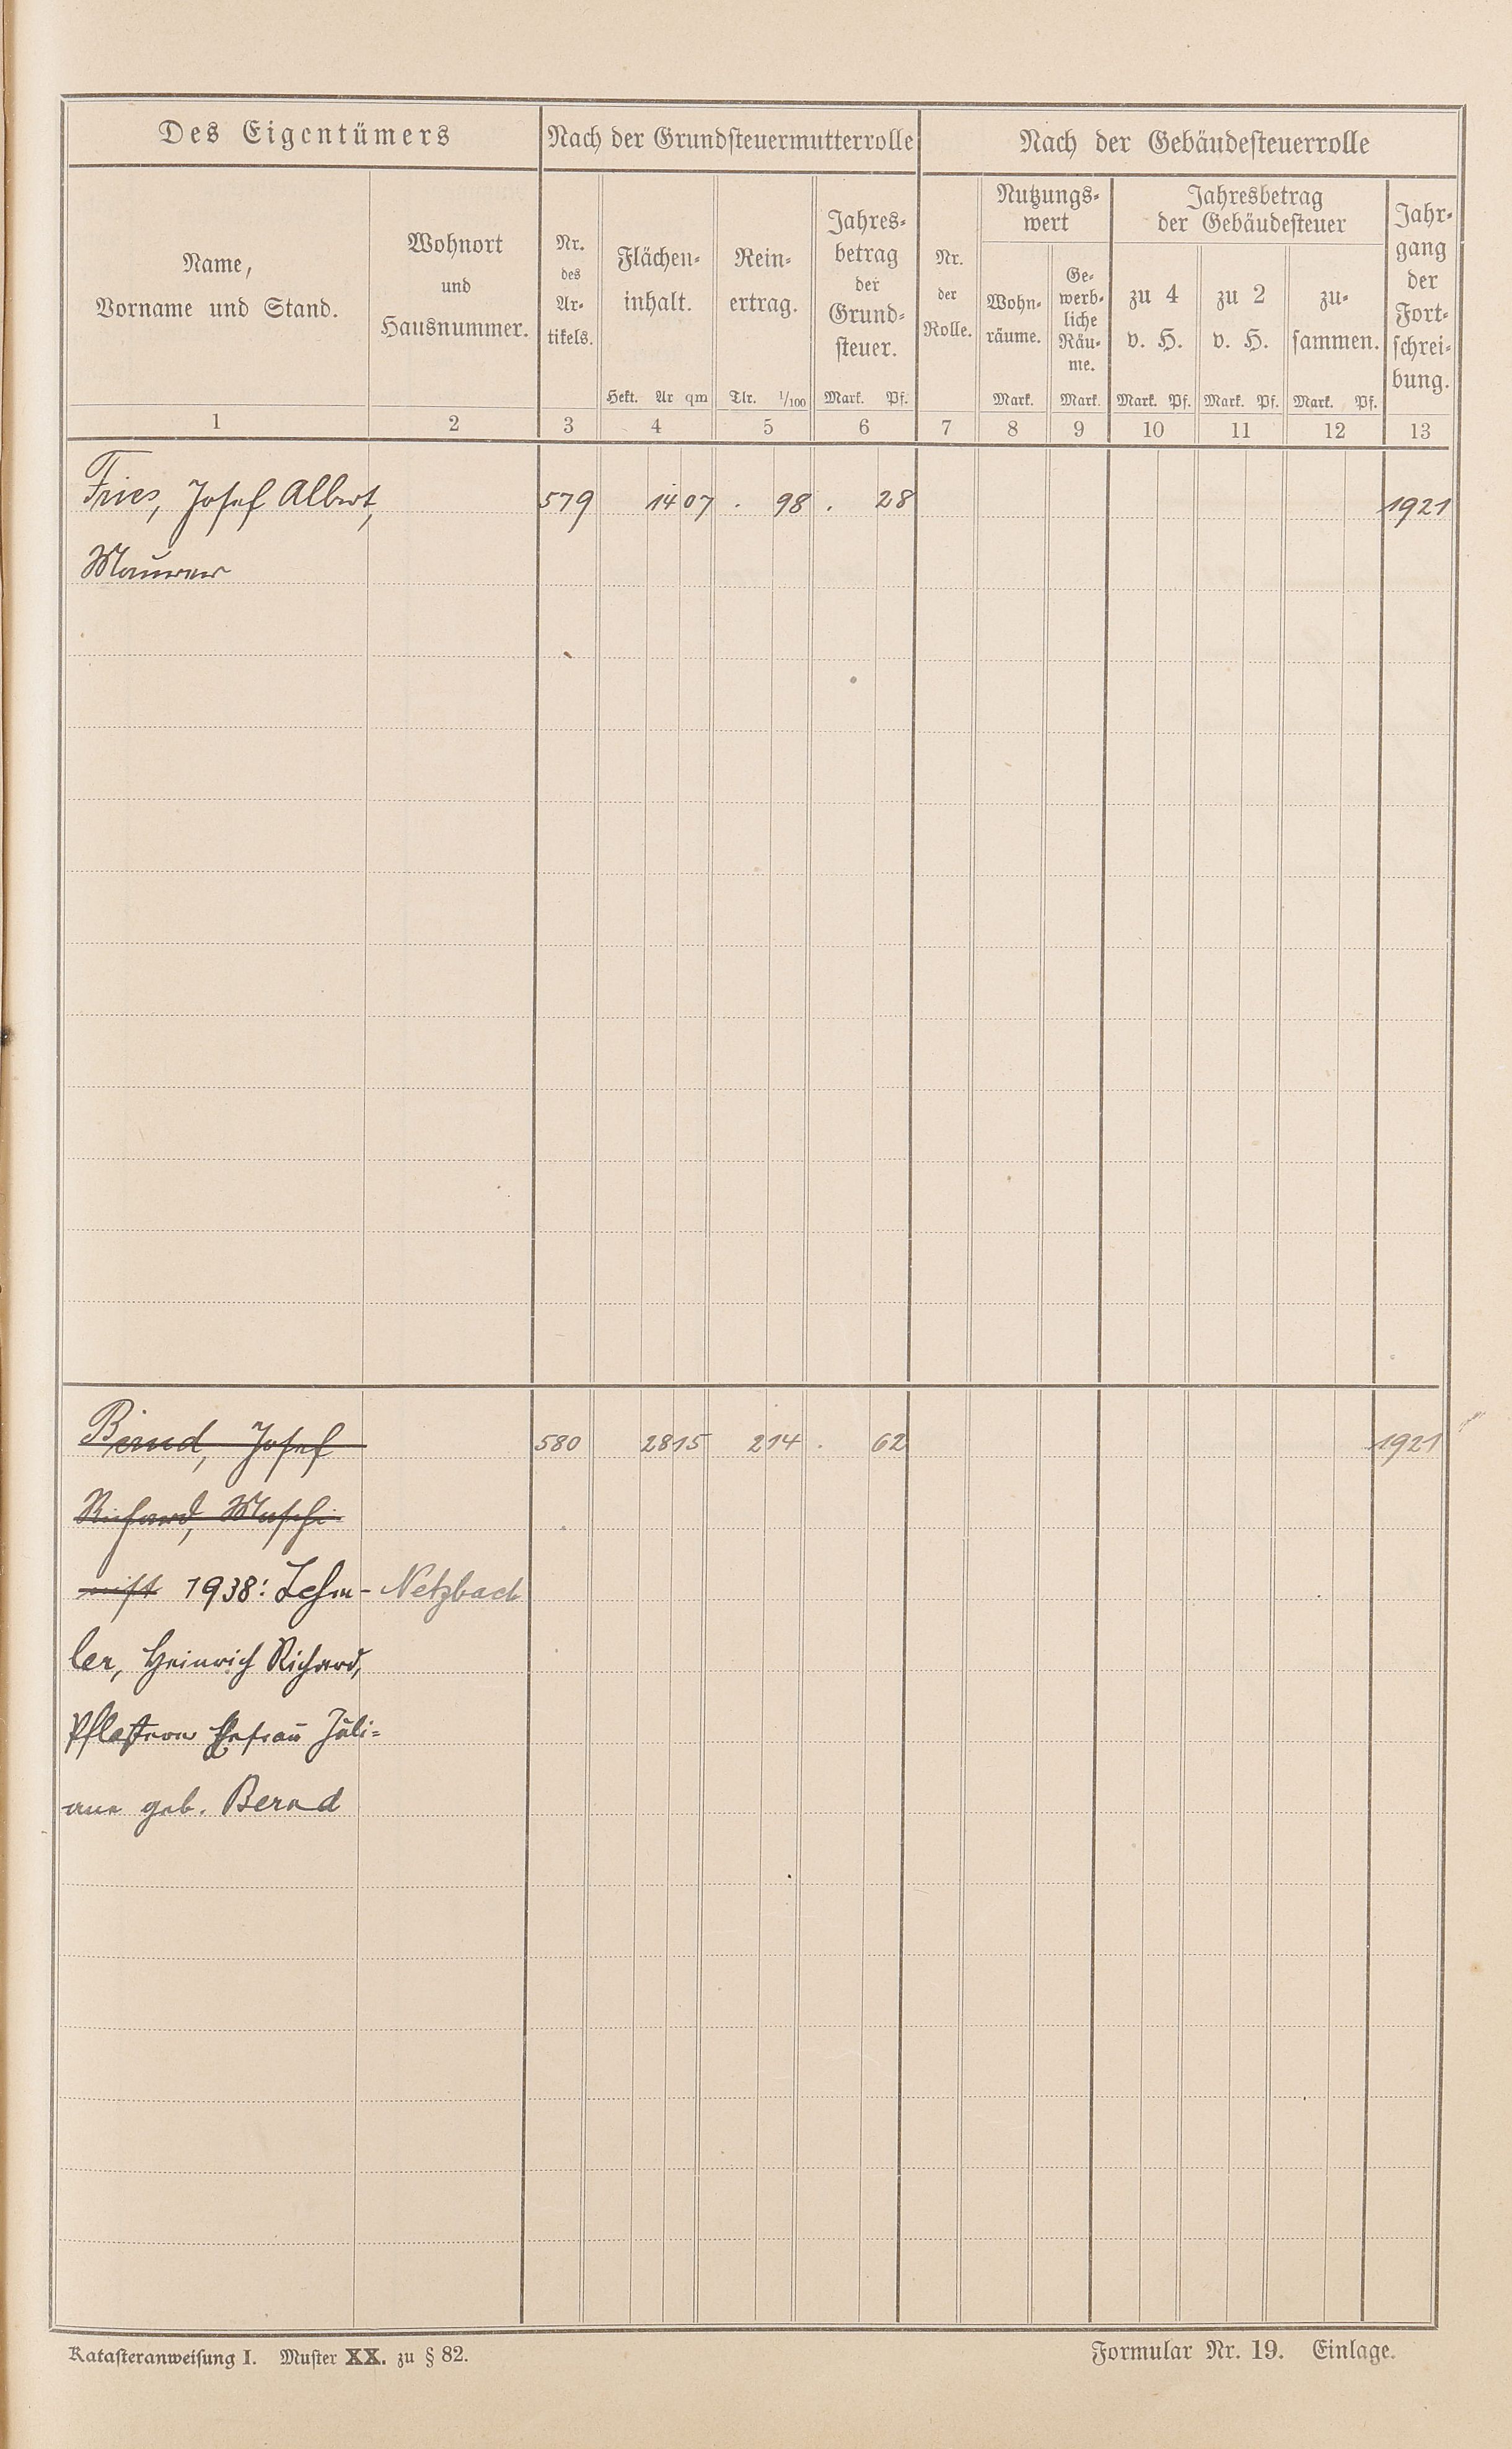 Des Eigentümers Nach der Grundsteuermutterrolle Nach der Gebäudesteuerrolle
Name,
Vorname und Stand.
Wohnort
und
Hausnummer.
Nr.
des
Ar-
tikels.
Flächen-
inhalt.
Hekt. Ar qm
Rein-
ertrag.
Tlr. 1/100
Jahres-
betrag
der
Grund-
steuer.
Mark. Pf.
Nr.
der
Rolle.
Nutzungs-
wert
Wohn-
räume.
Mark.
Ge-
werb-
liche
Räu-
me.
Mark.
Jahresbetrag
der Gebäudesteuer
zu 4
v. H.
Mark. Pf.
zu 2
v. H.
Mark. Pf.
zu-
sammen.
Mark. Pf.
Jahr-
gang
der
Fort-
schrei-
bung.
1 2 3 4 5 6 7 8 9 10 11 12 13
Fries, Josef Albert, 579 14 07 . 98 . 28 1921
Maurer
Bernd, Josef 580 28 15 2 14 . 62 1921
Richard, Maschi-
nist 1938: Lehm- Netzbach
ler, Heinrich Richard,
Pflasterer Ehefrau Juli-
ane geb. Bernd
Katasteranweisung I. Muster XX. zu § 82. Formular Nr. 19. Einlage.